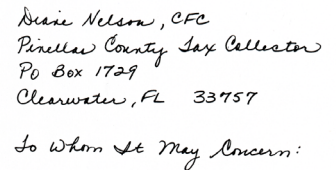 Diane Nelson, CFC
Pinellas County Tax Collector
Po Box 1729
Clearwater, FL 33757
To Whom It May Concern: